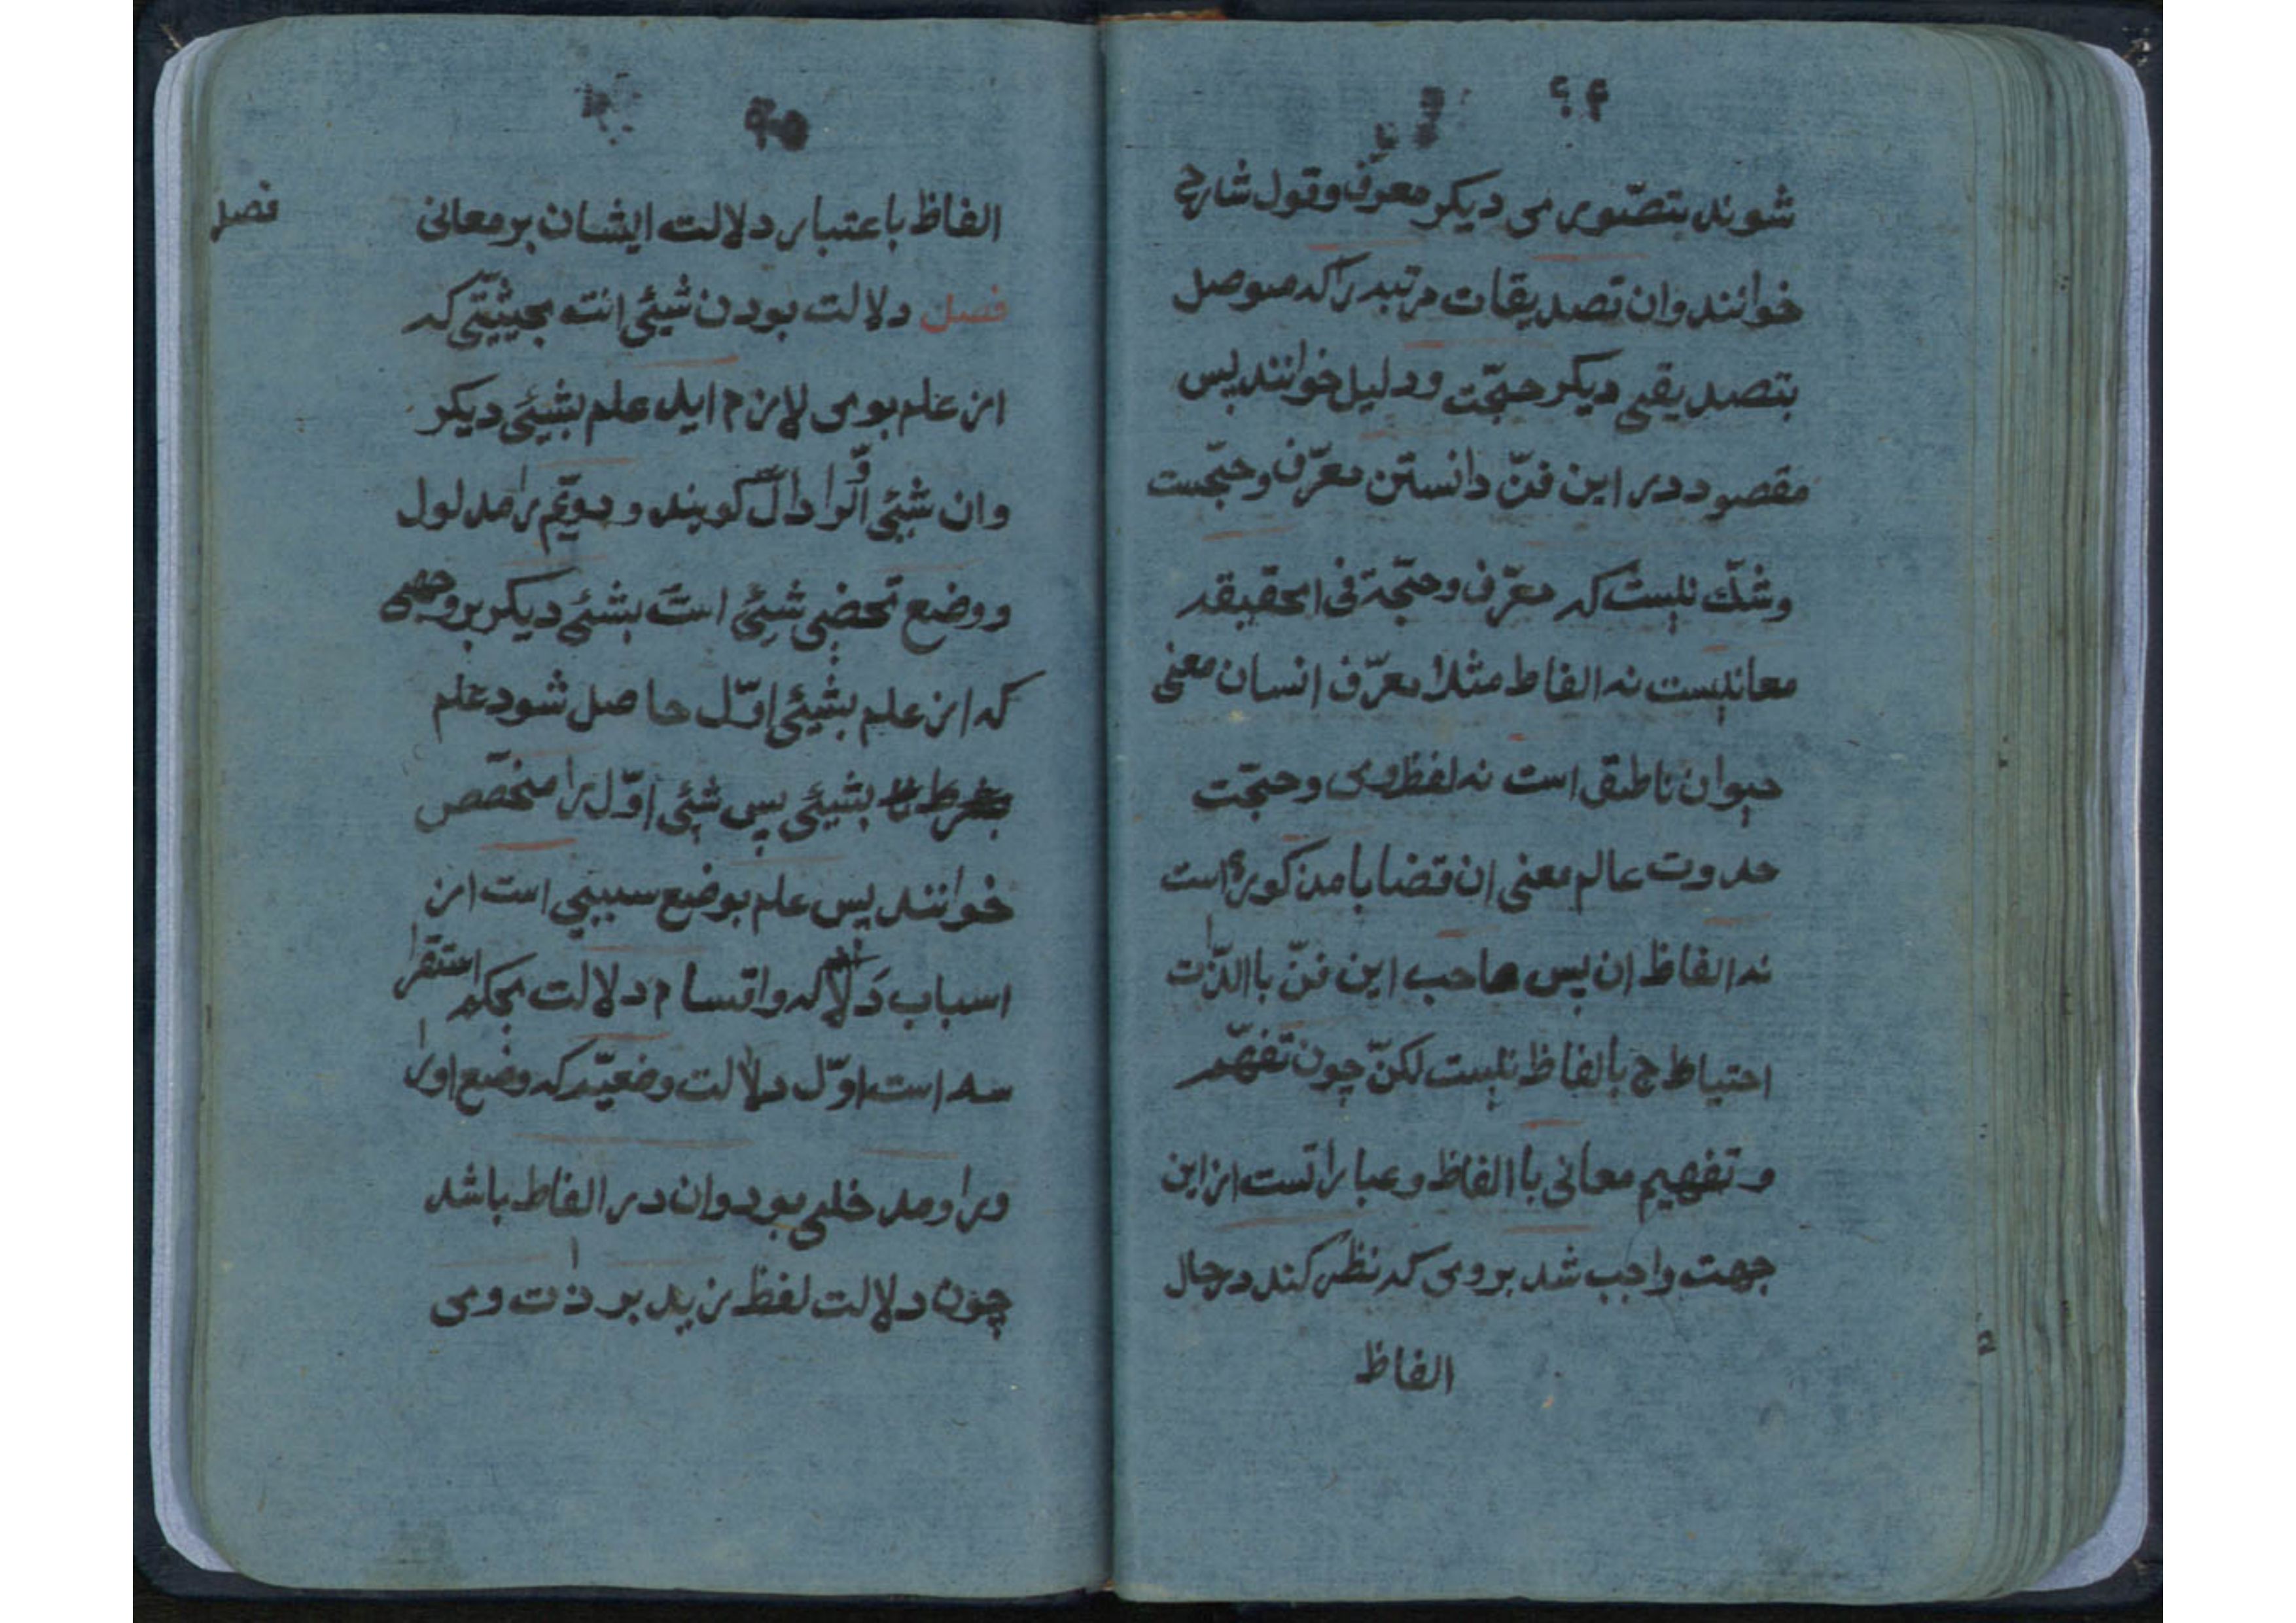 شوند بتصّوری دیکر معرّف وقول شارح
خوانند وان تصدیقات مرتبه را که موصل
بتصدیقی دیکر حجّت ودلیل خوانند پس
مقصود در این فنّ دانستن معرّف وحجّتست
وشکّ نیست که معرّف وحجّة فی الحقیقه
معانیست نه الفاط مثلا معرّف انسان معنی
حیوان ناطق است نه لفظ وی وحجّت
حدوت عالم معنی ان قضایا مذکوره است
نه الفاظ ان پس صاحب این فنّ با الذّات
احتیاط ج بالفاظ نیست لکنّ چون تفهّم
وتفهیم معانی با الفاظ وعباراتست از این
جهت واجب شد بروی که نظر کند در حال
الفاظ
الفاظ باعتبار دلالت ایشان بر معانی
فصل
فصل دلالت بودن شیئی است بحیثیّتی که
از علم بوی لازم اید علم بشیئی دیکر
وان شیئی اوّل را دالّ کویند ودویّم را مدلول
ووضع تحضی شیئی است بشیئی دیکر بر وجهی
که از علم بشیئی اوّل حاصل شود علم
بشیئی پس شیئی اوّل را منخصّص
خوانند پس علم بوضع سببیی است از
اسباب دلاله واقسام دلالت بحکم استقرا
سه است اوّل دلالت وضعیّه که وضع اورا
ورا ومدخلی بود وان در الفاط باشد
چون دلالت لفظ زید بر ذات وی